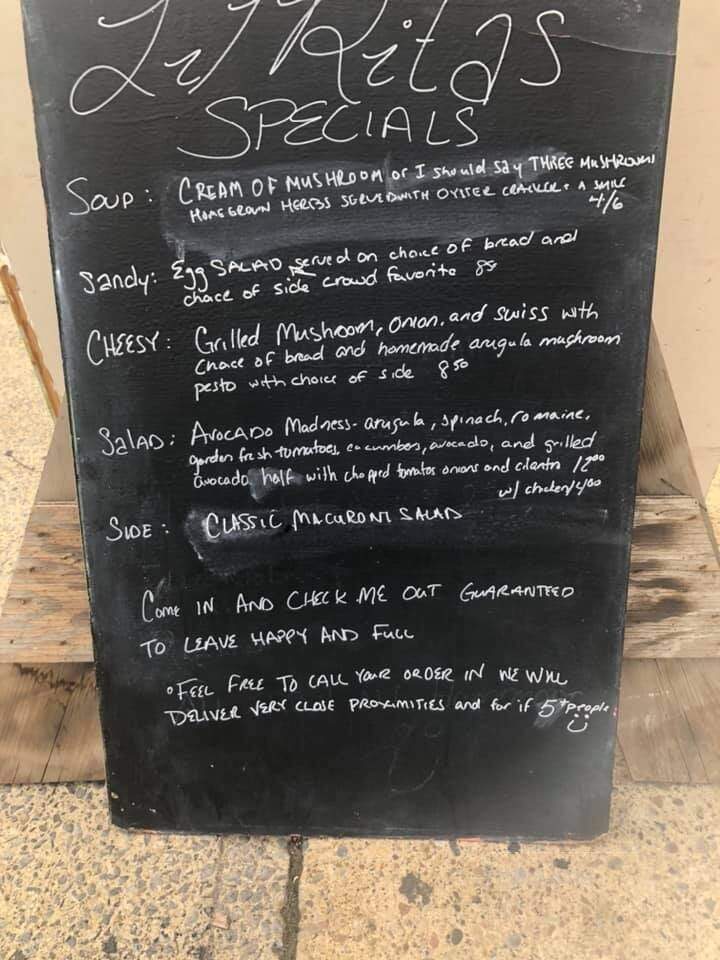 Lil Ritas
SPECIALS
SOUP : CREAM OF MUSHROOM or I should say THREE MUSHROOM
HOMEGROWN HERBS SERVED WITH OYSTER CRACKER & A SMILE
4/6
Sandy: Egg SALAD served on choice of bread and
choice of side crowd favorite 8
CHEESY: Grilled Mushroom, Onion, and Swiss with
Choice of bread and homemade arugula mushroom
pesto with choice of side 8 50
SALAD: AVOCADO Madness- arugula, spinach, romaine,
garden fresh tomatoes, cucumbers, avocado, and grilled
avocado half with chopped tomatos onions and cilantro 12 00
w/ chicken
SIDE : CLASSIC MACURONI SALAD
Come IN AND CHECK ME OUT GUARANTEED
TO LEAVE HAPPY AND FULL
• FEEL FREE TO CALL YOUR ORDER IN WE WILL
DELIVER VERY CLOSE PROXIMITIES and for if 5+ people